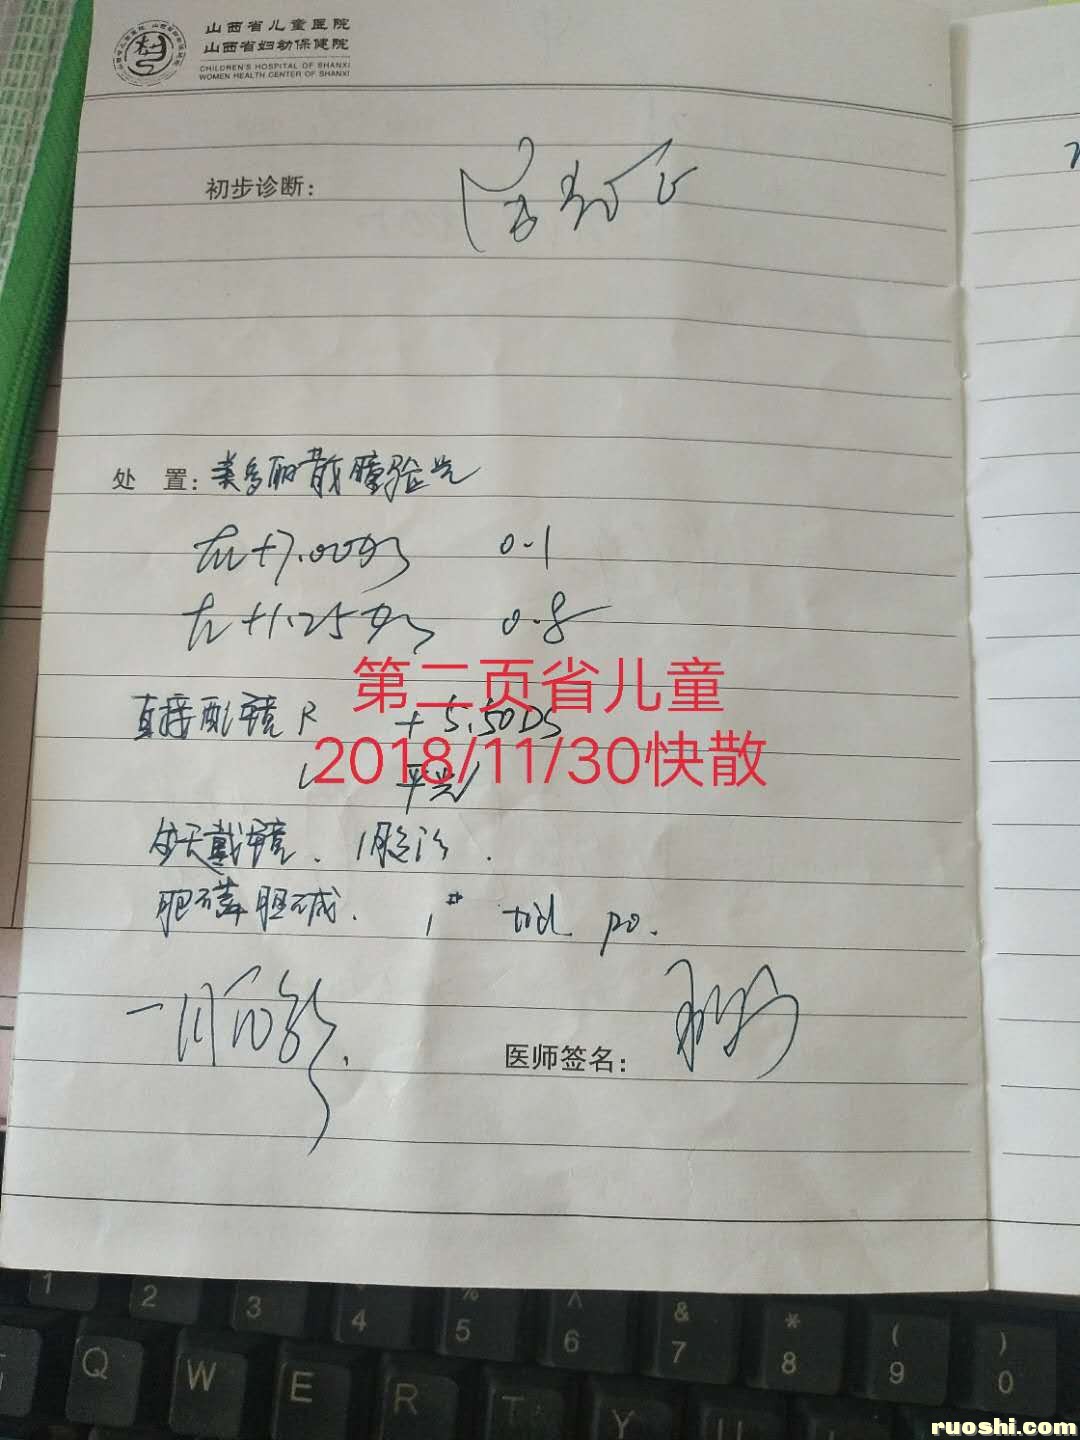 山西省儿童医院
山西省妇幼保健院
CHILDREN'S HOSPITAL OF SHANXI
WOMEN HEALTH CENTER OF SHANXI
初步诊断：
处 置：美多丽散瞳验光
右 +7.00 0.1
左 +1.25 0.8
第二页省儿童
直接配镜 R +5.50DS
2018/11/30快散
L 平光
全天戴镜. 1月
胞磷胆碱. 1# tid po.
一月
医师签名：
1 2 3 4 % 5 ^ 6 & 7 * 8 ( 9 ) 0
Q W E R T Y U
ruoshi.com